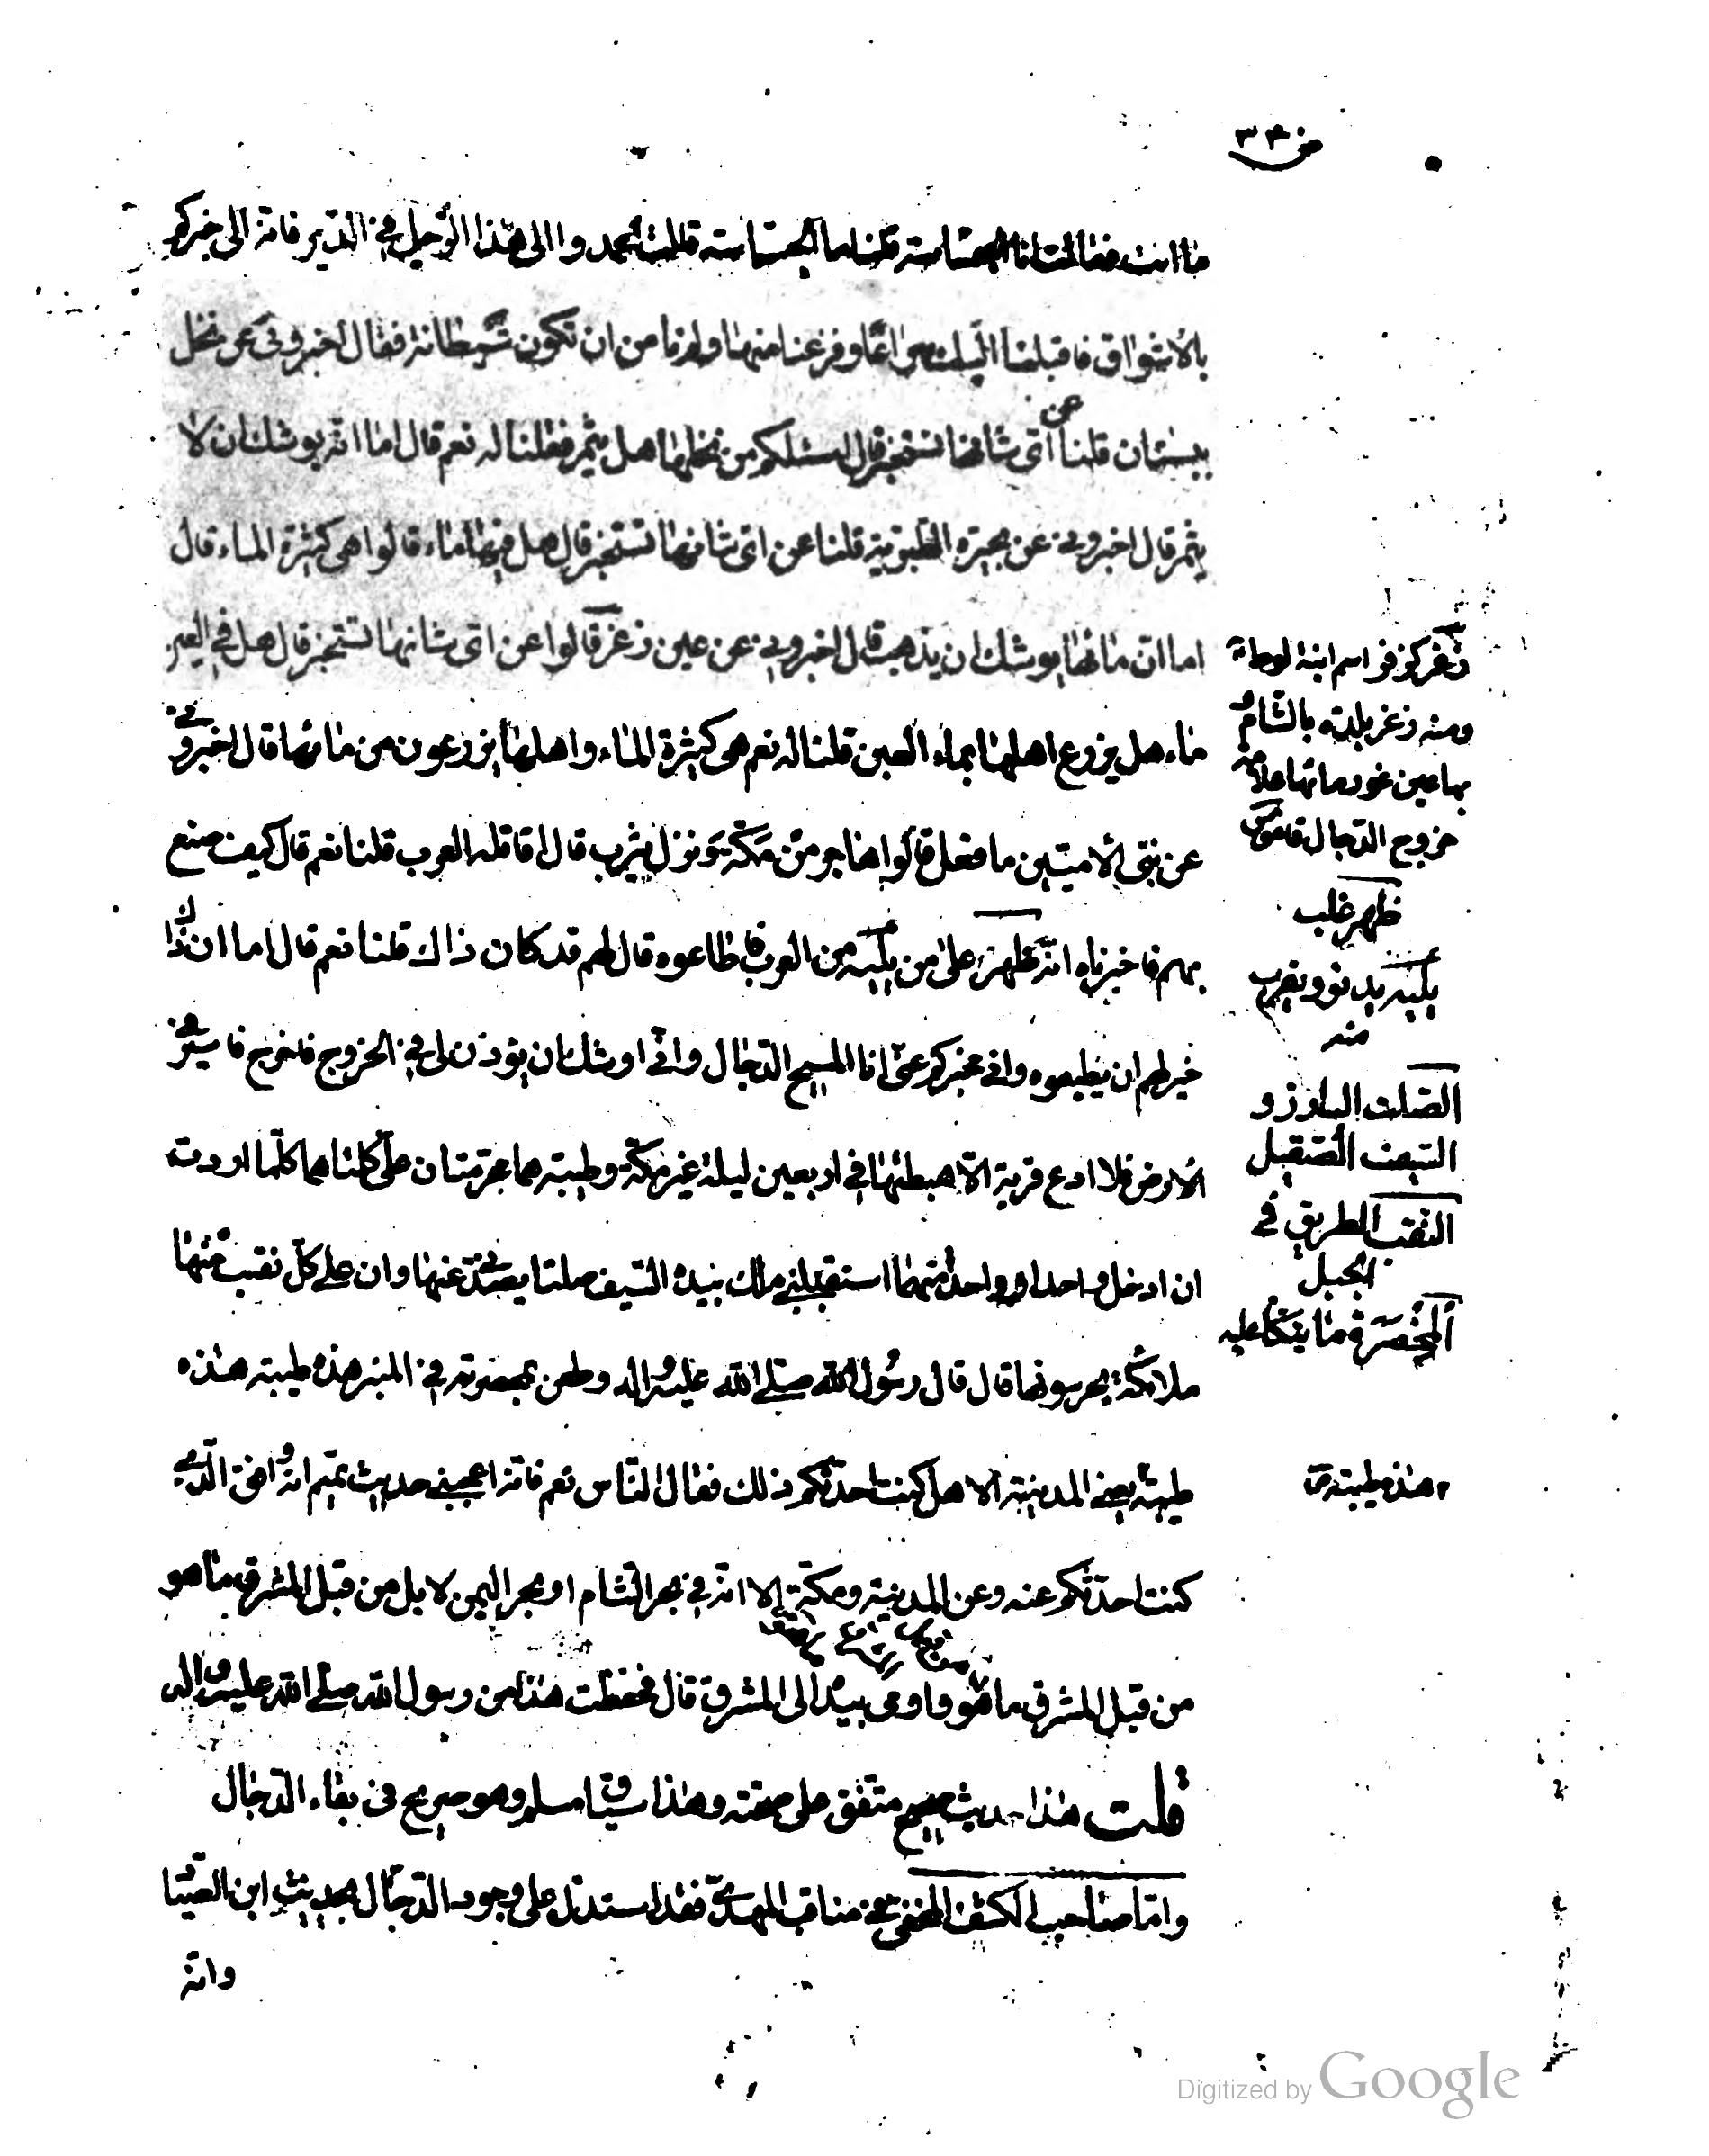 ما انت فقالت انا الجساسة قلنا ما الجساسة قالت اعمدوا الى هذا الرجل في الدير فانه الى خبركم
بالاشواق فاقبلنا اليك سراعا وفزعنا منها ولم نامن ان تكون شيطانة فقال اخبروني عن نخل
بيسان قلنا عن اى شانها تستخبر قال اسئلكم من نخلها هل يثمر فقلنا له نعم قال اما انه يوشك ان لا
يثمر قال اخبروني عن بحيرة الطبرية قلنا عن اى شانها تستخبر قال هل فيها ماء قالوا هى كثيرة الماء قال
اما ان ماءها يوشك ان يذهب قال اخبروني عن عين زغر قالوا عن اى شانها تستخبر قال هل في العين
ماء هل يزرع اهلها بماء العين قلنا له نعم هى كثيرة الماء واهلها يزرعون من مائها قال اخبروني
عن نبى الاميين ما فعل قالوا هاجر من مكة ونزل يثرب قال اقاتله العرب قلنا نعم قال كيف صنع
بهم فاخبرناه انه ظهر على من يليه من العرب فاطاعوه قال لهم قد كان ذاك قلنا نعم قال اما ان ذاك
خير لهم ان يطيعوه واني مخبركم عنى انا المسيح الدجال واني اوشك ان يؤذن لى في الخروج فاخرج فاسير في
الارض فلا ادع قرية الا هبطتها في اربعين ليلة غير مكة وطيبة هما محرمتان على كلتاهما كلما اردت
ان ادخل واحدا او واحدة منهما استقبلني ملك بيده السيف صلتا يصدنى عنها وان على كل نقب منها
ملائكة يحرسونها قال قال رسول الله صلى الله عليه واله وطعن بمخصرته في المنبر هذه طيبة هذه
طيبة يعني المدينة الا هل كنت احدثكم ذلك فقال الناس نعم فانه اعجبني حديث تميم انه وافق الذى
كنت احدثكم عنه وعن المدينة ومكة الا انه في بحر الشام او بحر اليمن لا بل من قبل المشرق ما هو
من قبل المشرق ما هو واومى بيده الى المشرق قال فحفظت هذا من رسول الله صلى الله عليه واله
قلت هذا حديث صحيح متفق على صحته وهذا سياق مسلم وهو صريح في بقاء الدجال
واما صاحب الكشف المخفي في مناقب المهدى فقد استدل على وجود الدجال بحديث ابن الصياد
وانه
زغر كزفر اسم ابنة لوط
ومنه زغر بلدة بالشام
بها عين غور مائها علامة
خروج الدجال قاموس
ظهر غلب
يليه يدنو ويقرب
منه
الصلت البارز و
السيف الصقيل
النقب الطريق في
الجبل
المخصرة ما يتكأ عليه
هذه طيبة